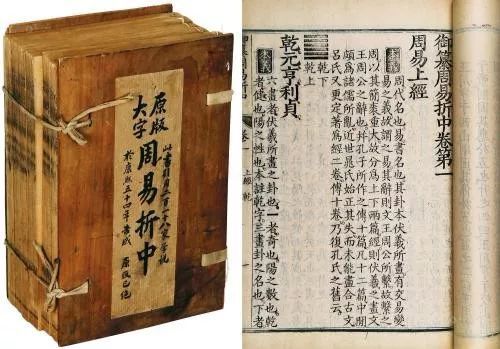 原版
大字
周易折中
於康熙五十四年書成 原版已絕
御纂周易折中卷第一
周易上經
本義 周代名也易書名也其卦本伏羲所畫有交易變
易之義故謂之易其辭則文王周公所繫故繫之
周以其簡袠重大故分為上下兩篇經則伏羲之畫文
王周公之辭也并孔子所作之傳十篇凡十二篇中間
頗為諸儒所亂近世晁氏始正其失而未能盡合古文
呂氏又更定著為經二卷傳十卷乃復孔氏之舊云
乾下
乾上
乾元亨利貞
本義 六畫者伏羲所畫之卦也一者奇也陽之數也乾
者健也陽之性也本註乾字三畫卦之名也下者
御纂周易折中 卷一 上經 乾